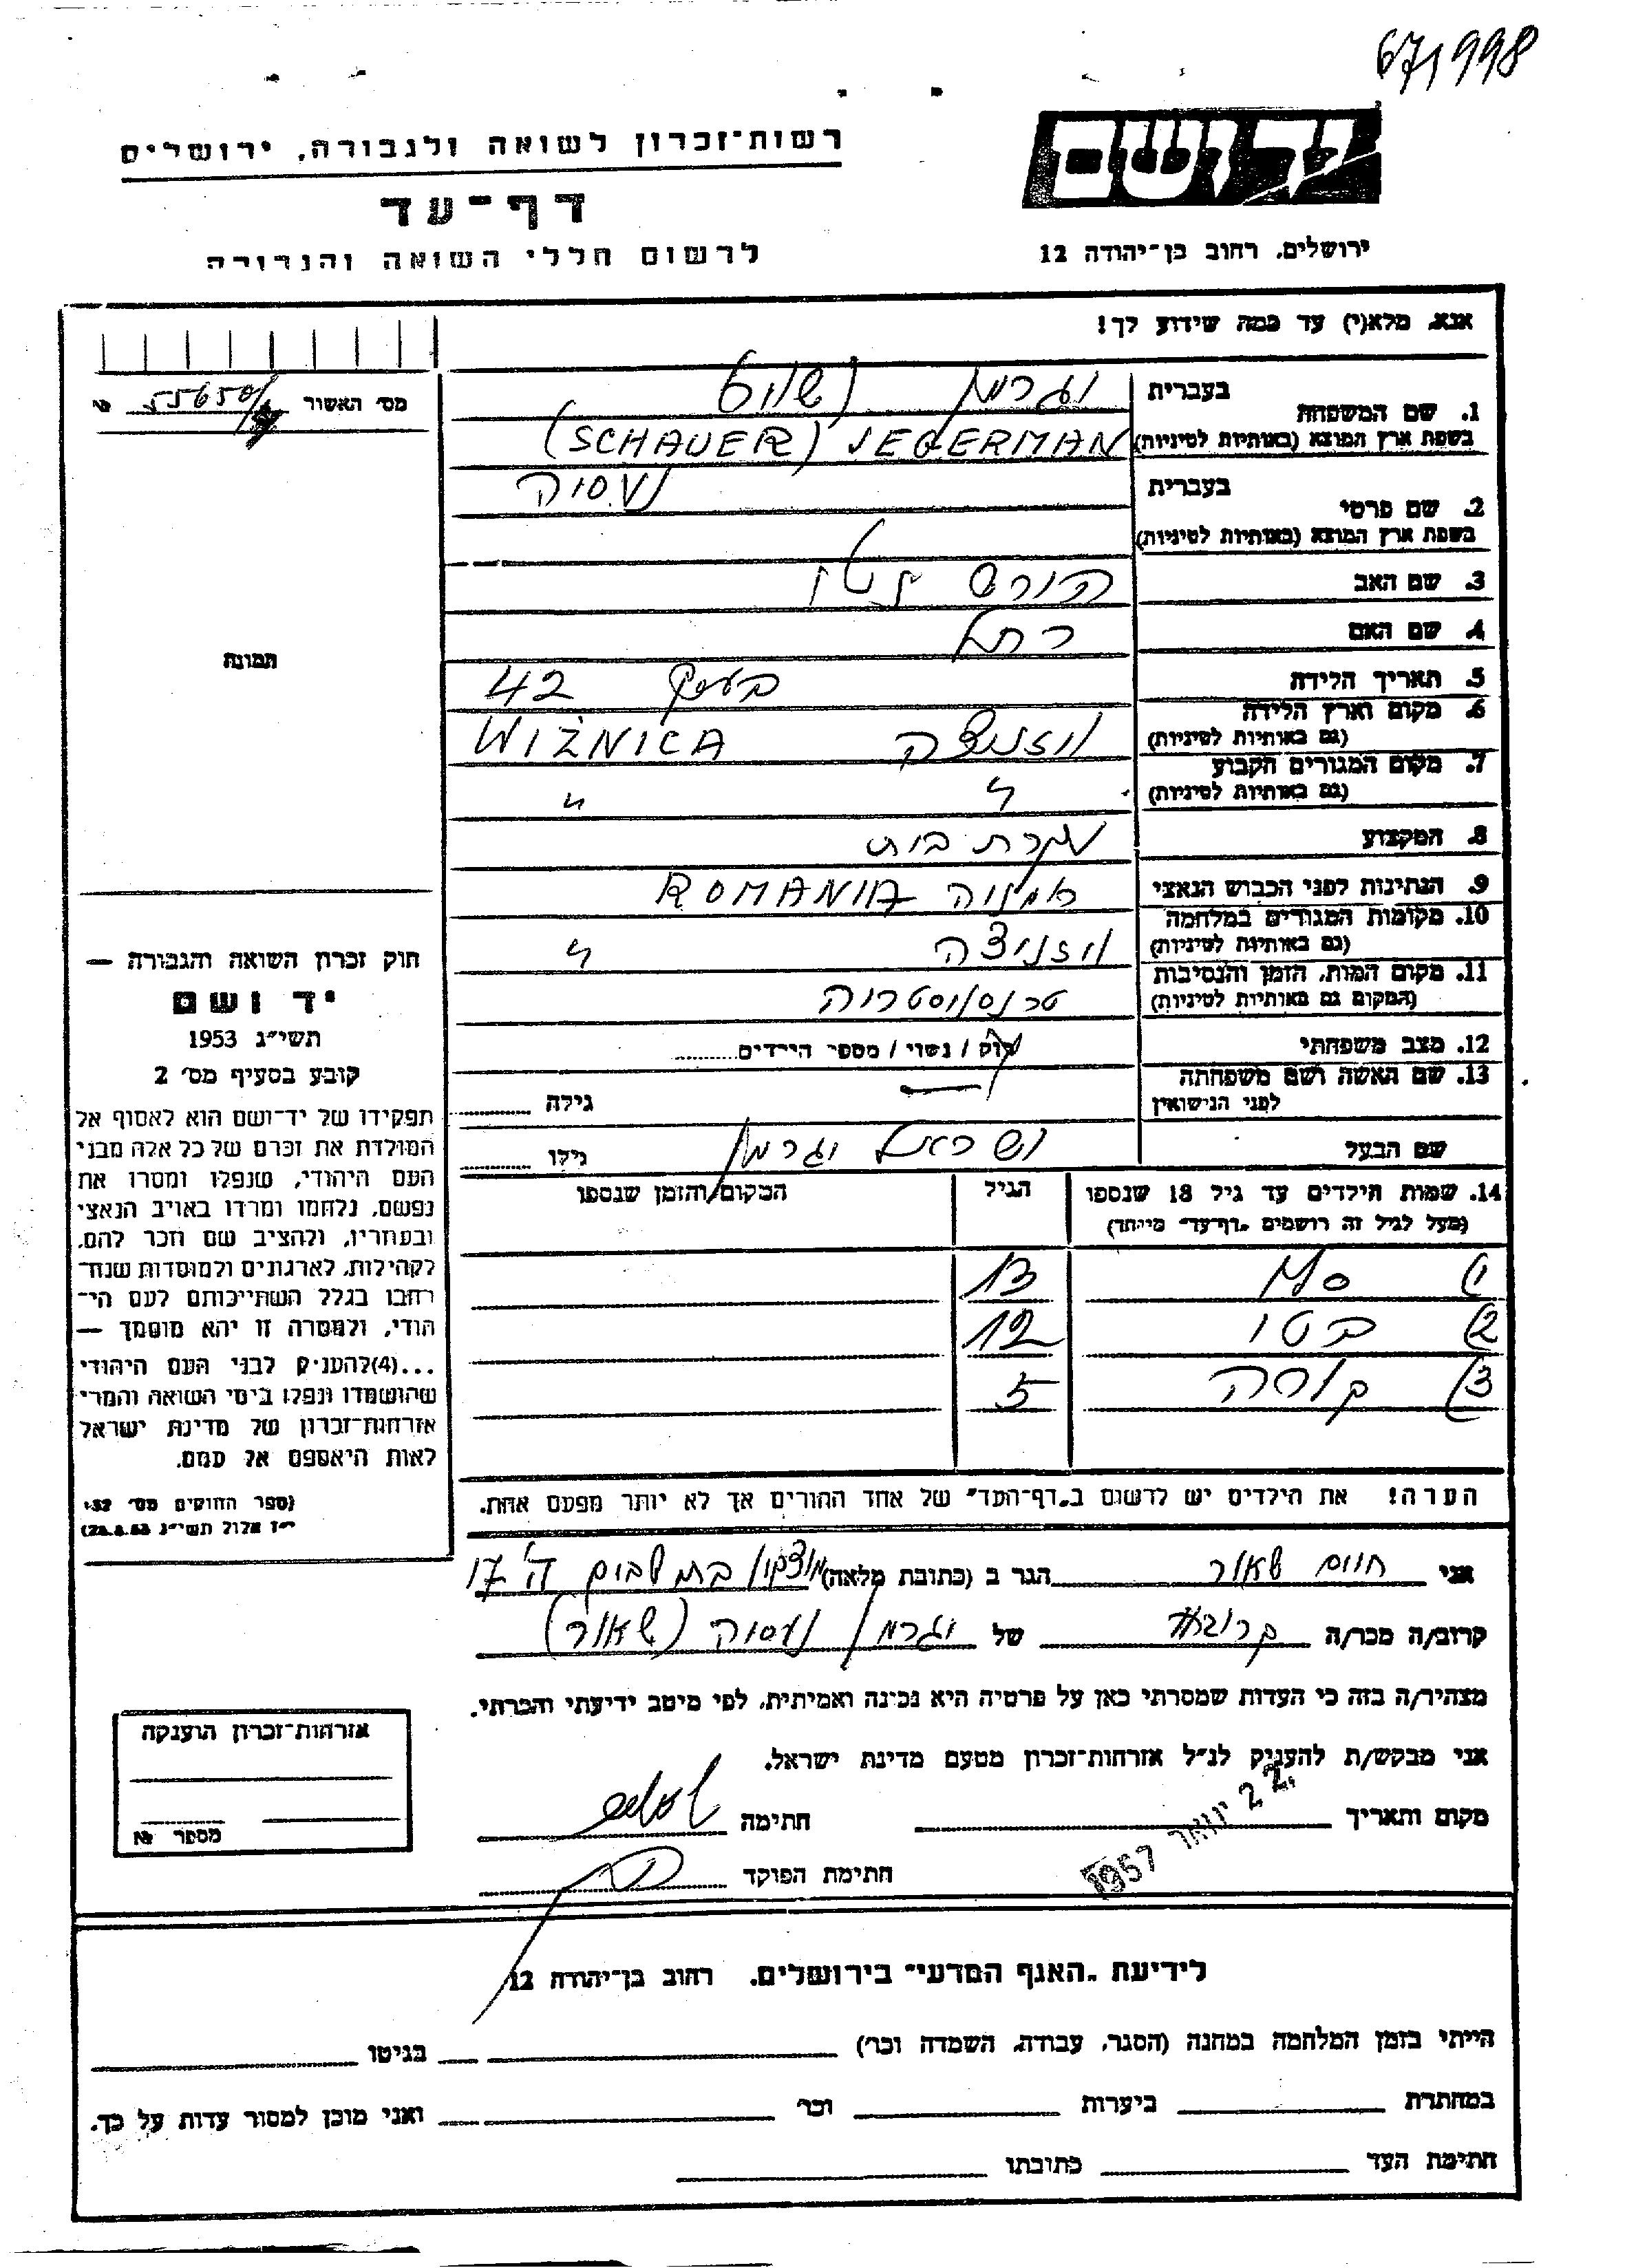 671998
רשות־זכרון לשואה ולגבורה, ירושלים
דף־עד
לרשום חללי השואה והגבורה
יד ושם
ירושלים, רחוב בן־יהודה 12
אנא, מלא(י) עד כמה שידוע לך!
מס' האשור 55650 №
תמונה
1. שם המשפחה
בעברית יגרמן
בשפת ארץ המוצא (באותיות לטיניות) JEGERMAN (SCHAUER)
2. שם פרטי
בעברית נעסיה
בשפת ארץ המוצא (באותיות לטיניות)
3. שם האב הירש
4. שם האם רחל
5. תאריך הלידה בערך 42
6. מקום וארץ הלידה (גם באותיות לטיניות) ויזניצה WIŻNICA
7. מקום המגורים הקבוע (גם באותיות לטיניות) " "
8. המקצוע עקרת בית
9. הנתינות לפני הכבוש הנאצי רומניה ROMANIA
10. מקומות המגורים במלחמה (גם באותיות לטיניות) ויזניצה "
11. מקום המות, הזמן והנסיבות (המקום גם באותיות לטיניות) טרנסניסטריה
12. מצב משפחתי רוק / נשוי / מספר הילדים
13. שם האשה ושם משפחתה לפני הנישואין — גילה
שם הבעל ישראל יגרמן גילו
14. שמות הילדים עד גיל 18 שנספו הגיל המקום והזמן שנספו
(מעל לגיל זה רושמים „דף־עד" מיוחד)
1) 13
2) בטי 12
3) 5
הערה! את הילדים יש לרשום ב„דף־העד" של אחד ההורים אך לא יותר מפעם אחת.
חוק זכרון השואה והגבורה —
יד ושם
תשי"ג 1953
קובע בסעיף מס' 2
תפקידו של יד־ושם הוא לאסוף אל
המולדת את זכרם של כל אלה מבני
העם היהודי, שנפלו ומסרו את
נפשם, נלחמו ומרדו באויב הנאצי
ובעוזריו, ולהציב שם וזכר להם,
לקהילות, לארגונים ולמוסדות שנח־
רבו בגלל השתייכותם לעם הי־
הודי, ולמטרה זו יהא מוסמך —
...(4) להעניק לבני העם היהודי
שהושמדו ונפלו בימי השואה והמרי
אזרחות־זכרון של מדינת ישראל
לאות היאספם אל עמם.
(ספר החוקים מס' 132
י"ז אלול תשי"ג 28.8.53)
אני חיים שאור הגר ב (כתובת מלאה) מוצקין 17
קרוב/ה מכר/ה של יגרמן נעסיה (שאור)
מצהיר/ה בזה כי העדות שמסרתי כאן על פרטיה היא נכונה ואמיתית, לפי מיטב ידיעתי והכרתי.
אני מבקש/ת להעניק לנ"ל אזרחות־זכרון מטעם מדינת ישראל.
מקום ותאריך 22 ינואר 1957 חתימה
חתימת הפוקד
אזרחות־זכרון הוענקה
מספר №
לידיעת „האגף המדעי" בירושלים, רחוב בן־יהודה 12
הייתי בזמן המלחמה במחנה (הסגר, עבודה, השמדה וכר') בגיטו
במחתרת ביערות וכר' ואני מוכן למסור עדות על כך.
חתימת העד כתובתו